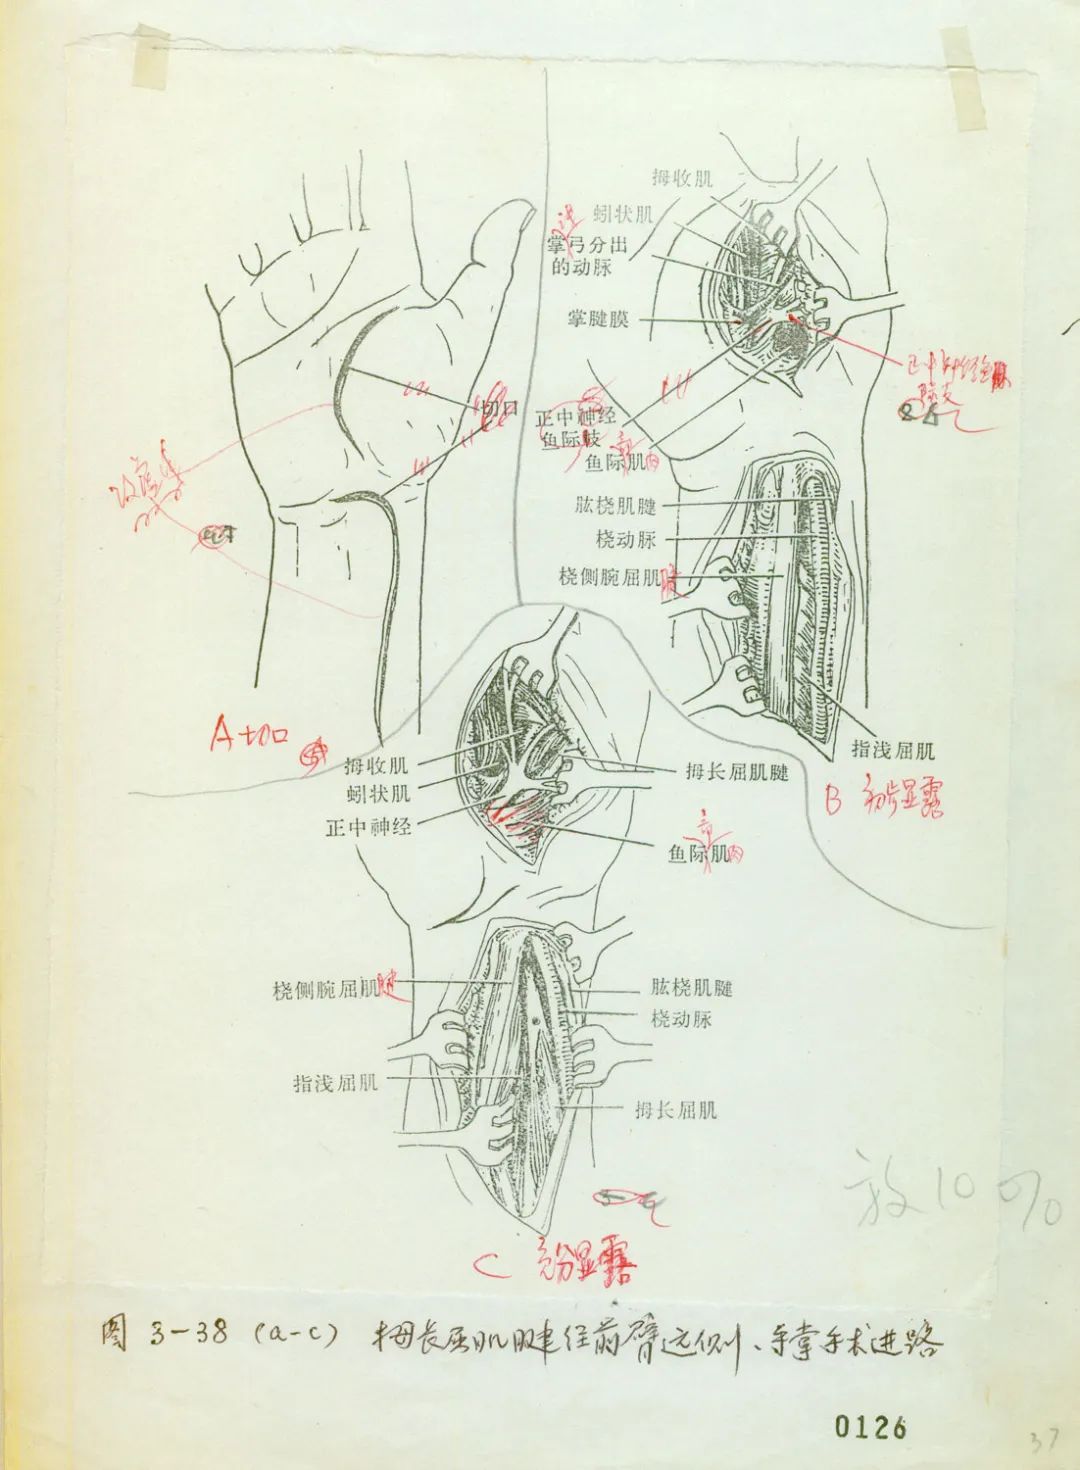 拇收肌
蚓状肌
掌弓分出
的动脉
掌腱膜
切口
正中神经
鱼际肢
鱼际肌
肉
肱桡肌腱
桡动脉
桡侧腕屈肌腱
指浅屈肌
B 初步显露
A 切口
拇收肌
蚓状肌
正中神经
拇长屈肌腱
鱼际肌
肉
桡侧腕屈肌腱
肱桡肌腱
桡动脉
指浅屈肌
拇长屈肌
放10%
C 充分显露
图 3-38 (a-c) 拇长屈肌腱经前臂远侧、手掌手术进路
0126
37